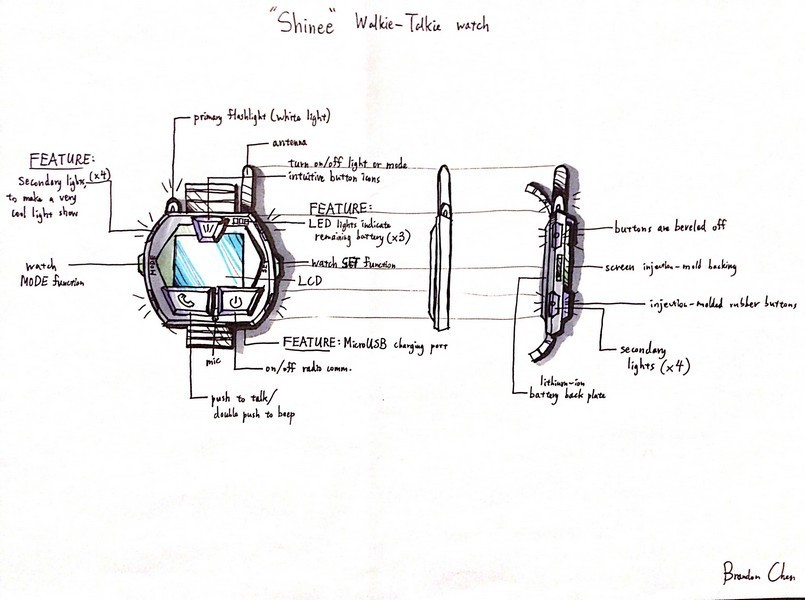 "Shinee" Walkie-Talkie watch
primary flashlight (white light)
antenna
turn on/off light or mode
intuitive button icons
FEATURE:
Secondary lights, (x4)
to make a very
cool light show
FEATURE:
LED lights indicate
remaining battery (x3)
watch
MODE function
watch SET function
LCD
MODE
SET
FEATURE: MicroUSB charging port
mic
on/off radio comm.
push to talk/
double push to beep
buttons are beveled off
screen injection-mold backing
injection-molded rubber buttons
secondary
lights (x4)
lithium-ion
battery back plate
Brandon Chen